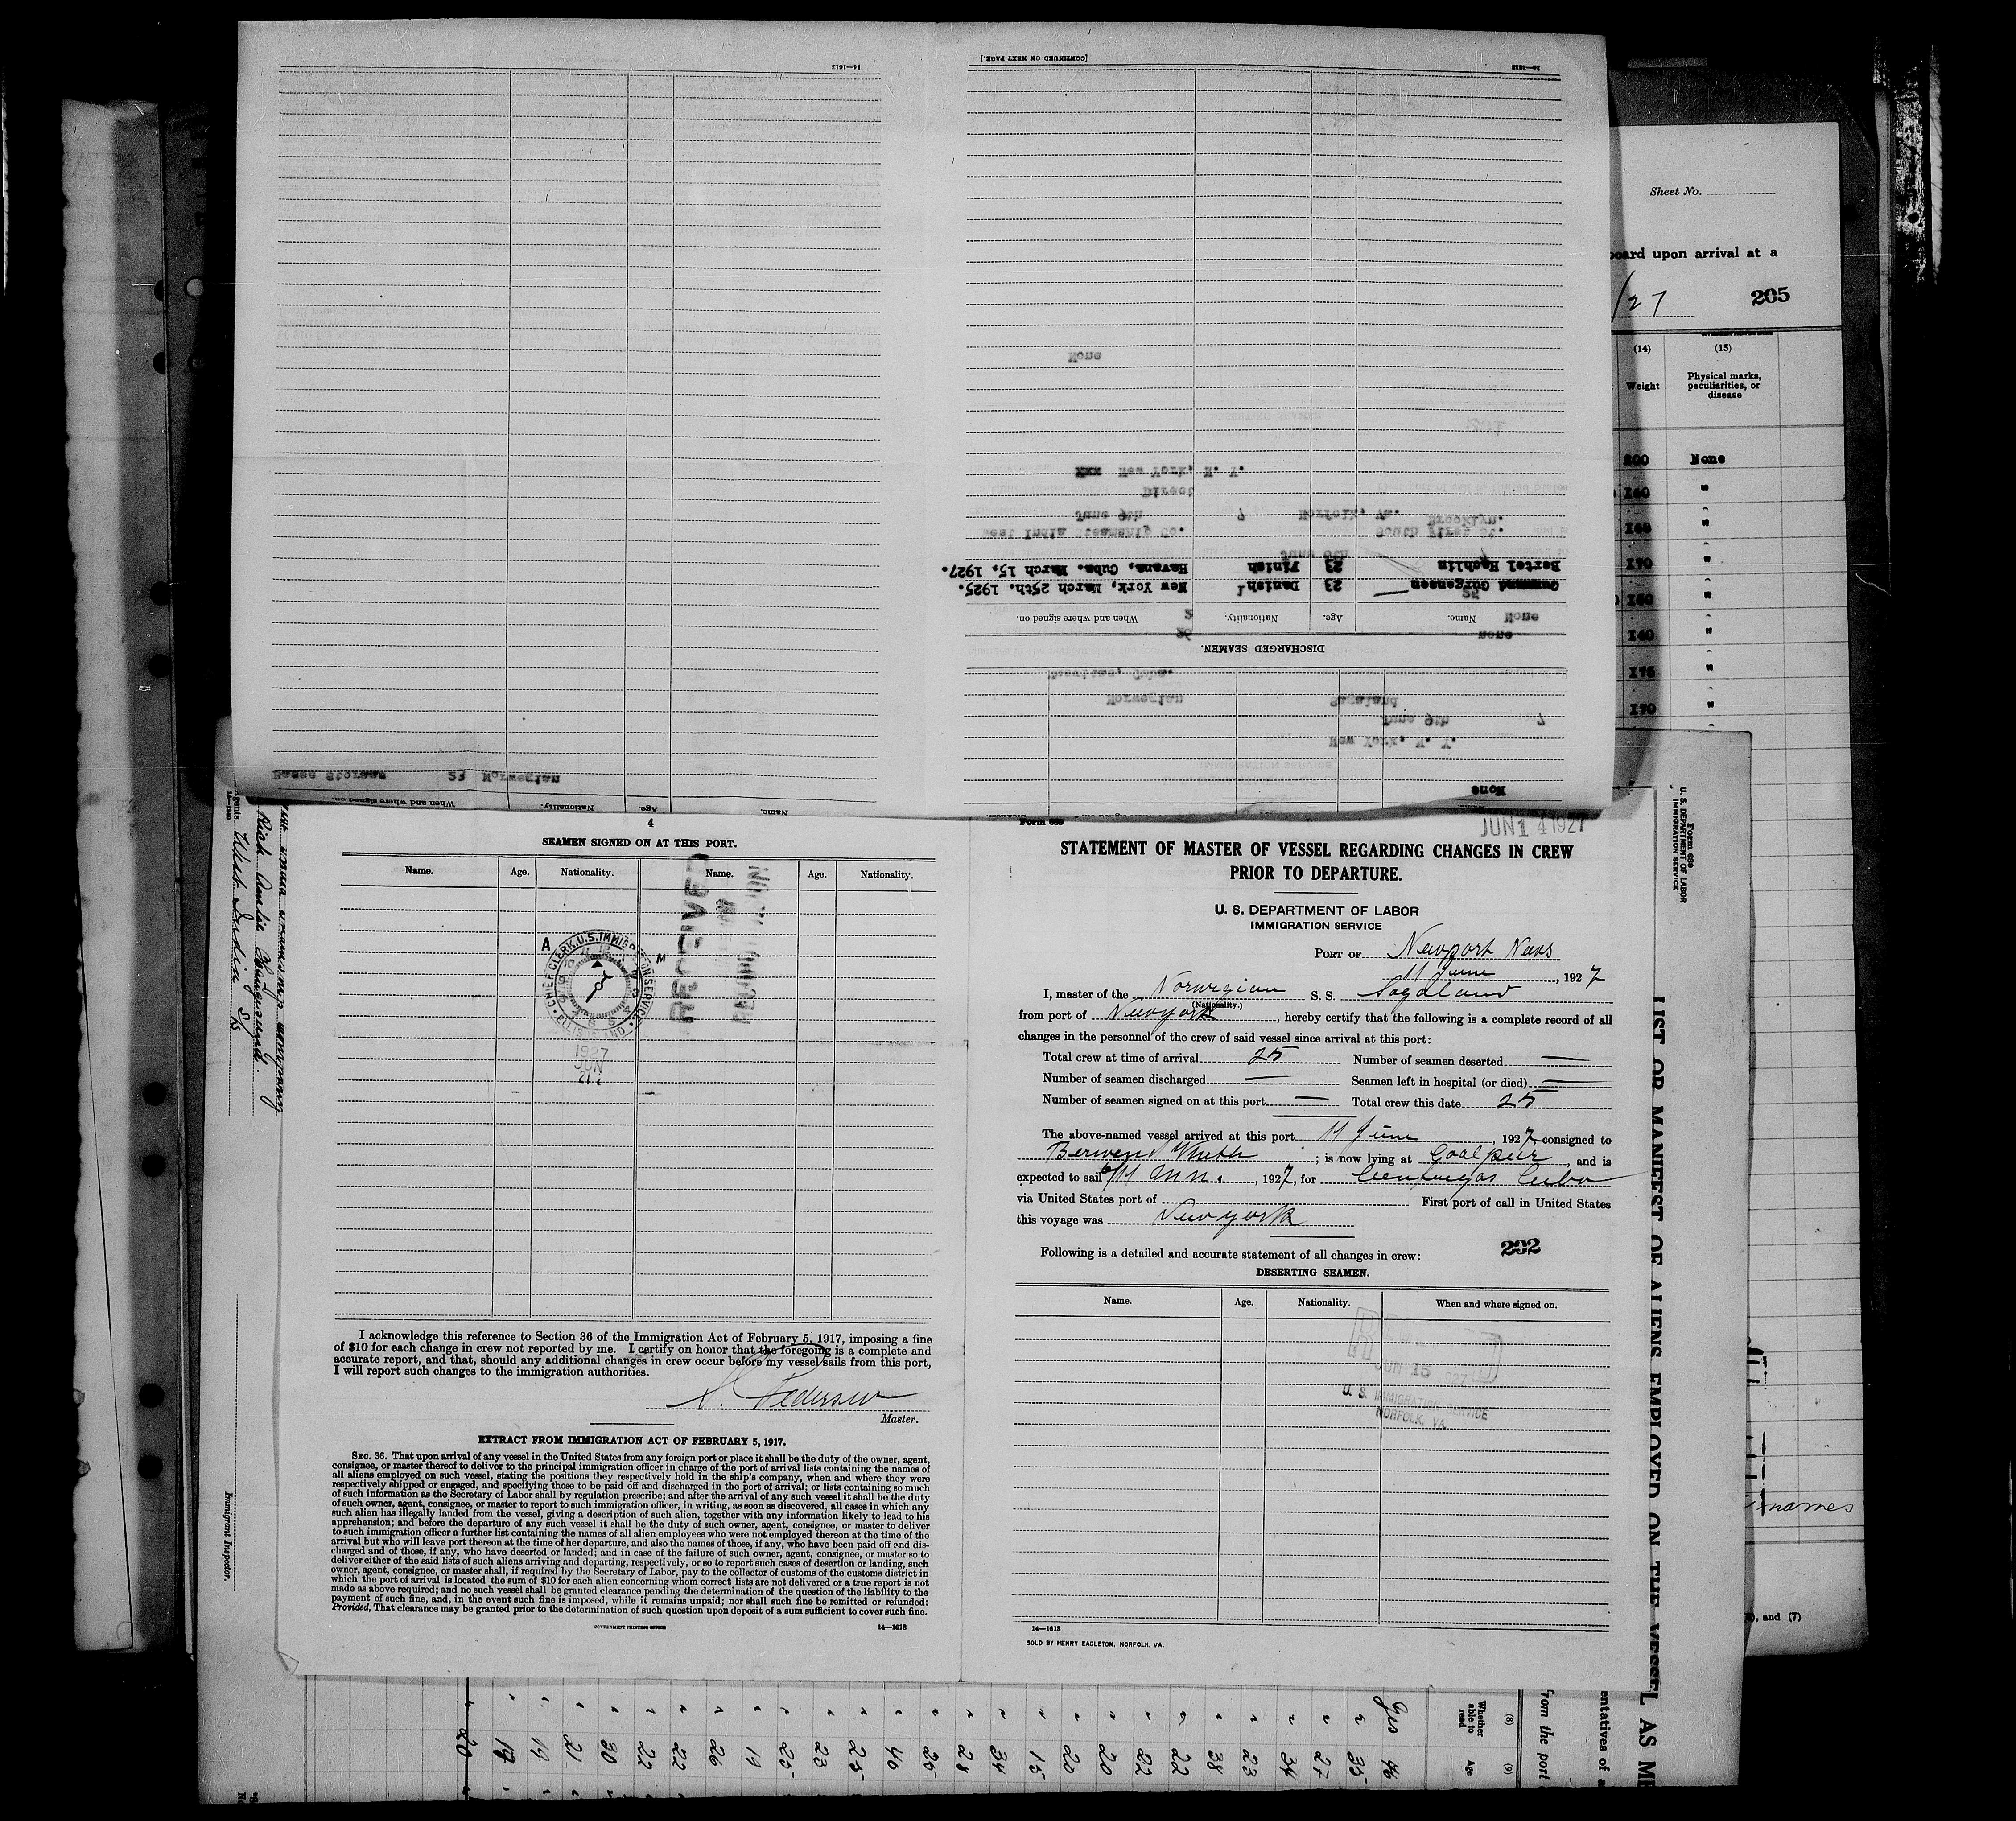 Sheet No.
board upon arrival at a
/27 205
(14) (15)
Weight Physical marks,
peculiarities, or
disease
200 None
160 "
160 "
170 "
160 "
140 "
175 "
170 "
names
, and (7)
14—1613
[CONTINUED ON NEXT PAGE.]
14—1613
None
xxx New York, N. Y.
Direct
June 9th 7 Norfolk, Va. Brooklyn.
West India Steamship Co. South First St.
June 8th
Bertel Hechlin 23 Finish Havana, Cuba. March 15, 1927.
Gummund Gurgensen 23 Danish New York, March 25th. 1925.
25
Name. Age. Nationality. When and where signed on.
None 2
none 26
DISCHARGED SEAMEN.
Norwegian Sagaland
June 9th 7
New York, N. Y.
None
23 Norwegian
Name. Age. Nationality. When and where signed on.
4
SEAMEN SIGNED ON AT THIS PORT.
Name. Age. Nationality. Name. Age. Nationality.
RECEIVED
A M
CHIEF CLERK, U.S. IMMIGRATION SERVICE
ELLIS ISLAND
1927
JUN
21
I acknowledge this reference to Section 36 of the Immigration Act of February 5, 1917, imposing a fine
of $10 for each change in crew not reported by me. I certify on honor that the foregoing is a complete and
accurate report, and that, should any additional changes in crew occur before my vessel sails from this port,
I will report such changes to the immigration authorities.
Pedersen
Master.
EXTRACT FROM IMMIGRATION ACT OF FEBRUARY 5, 1917.
SEC. 36. That upon arrival of any vessel in the United States from any foreign port or place it shall be the duty of the owner, agent,
consignee, or master thereof to deliver to the principal immigration officer in charge of the port of arrival lists containing the names of
all aliens employed on such vessel, stating the positions they respectively hold in the ship's company, when and where they were
respectively shipped or engaged, and specifying those to be paid off and discharged in the port of arrival; or lists containing so much
of such information as the Secretary of Labor shall by regulation prescribe; and after the arrival of any such vessel it shall be the duty
of such owner, agent, consignee, or master to report to such immigration officer, in writing, as soon as discovered, all cases in which any
such alien has illegally landed from the vessel, giving a description of such alien, together with any information likely to lead to his
apprehension; and before the departure of any such vessel it shall be the duty of such owner, agent, consignee, or master to deliver
to such immigration officer a further list containing the names of all alien employees who were not employed thereon at the time of the
arrival but who will leave port thereon at the time of her departure, and also the names of those, if any, who have been paid off and dis-
charged and of those, if any, who have deserted or landed; and in case of the failure of such owner, agent, consignee, or master so to
deliver either of the said lists of such aliens arriving and departing, respectively, or so to report such cases of desertion or landing, such
owner, agent, consignee, or master shall, if required by the Secretary of Labor, pay to the collector of customs of the customs district in
which the port of arrival is located the sum of $10 for each alien concerning whom correct lists are not delivered or a true report is not
made as above required; and no such vessel shall be granted clearance pending the determination of the question of the liability to the
payment of such fine, and, in the event such fine is imposed, while it remains unpaid; nor shall such fine be remitted or refunded:
Provided, That clearance may be granted prior to the determination of such question upon deposit of a sum sufficient to cover such fine.
GOVERNMENT PRINTING OFFICE 14—1613
Form 689
JUN 14 1927
STATEMENT OF MASTER OF VESSEL REGARDING CHANGES IN CREW
PRIOR TO DEPARTURE.
U. S. DEPARTMENT OF LABOR
IMMIGRATION SERVICE
PORT OF Newport News
11 June, 1927
I, master of the Norwegian S. S. Sagaland
(Nationality.)
from port of Newyork, hereby certify that the following is a complete record of all
changes in the personnel of the crew of said vessel since arrival at this port:
Total crew at time of arrival 25 Number of seamen deserted —
Number of seamen discharged — Seamen left in hospital (or died) —
Number of seamen signed on at this port — Total crew this date 25
The above-named vessel arrived at this port 11 June, 1927 consigned to
Berwend ; is now lying at Coalpier, and is
expected to sail , 1927, for Cienfuegos Cuba
via United States port of First port of call in United States
this voyage was Newyork
Following is a detailed and accurate statement of all changes in crew: 202
DESERTING SEAMEN.
Name. Age. Nationality. When and where signed on.
JUN 15 1927
U. S. IMMIGRATION SERVICE
NORFOLK, VA.
14—1613
SOLD BY HENRY EAGLETON, NORFOLK, VA.
Form 680
U. S. DEPARTMENT OF LABOR
IMMIGRATION SERVICE
LIST OR MANIFEST OF ALIENS EMPLOYED ON THE VESSEL AS ME
entatives of a
from the port
(8) (9)
Whether able to read Age
Yes 46
" 35
" 27
" 34
" 23
" 38
" 22
" 22
" 20
" 20
" 15
" 34
" 28
" 25
" 46
" 25
" 23
" 25
" 19
" 26
" 22
" 22
" 30
" 21
" 19
" 19
" 20
Agents West India S/S
14—1680
Immigrant Inspector.